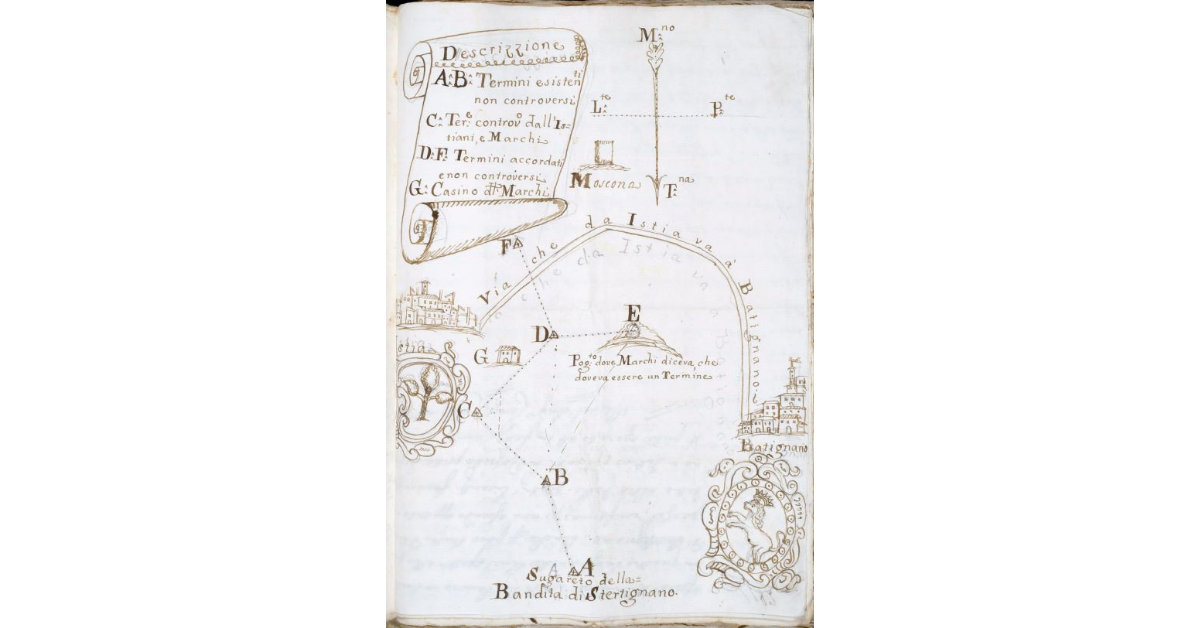 Descrizzione
A:B: Termini esistenti
non controversi
C: Ter:e controvo dall'Is=
tiani, e Marchi
D:F: Termini accordati
e non controversi
G: Casino Marchi
M:no
L:te P:te
T:na
Moscona
F
Via che da Istia va à Batignano
che da Istia va a
E
D
Pog:to dove Marchi diceva, che
doveva essere un Termine
G
C
Batignano
B
A
Sugareto della=
Bandita di Stertignano.